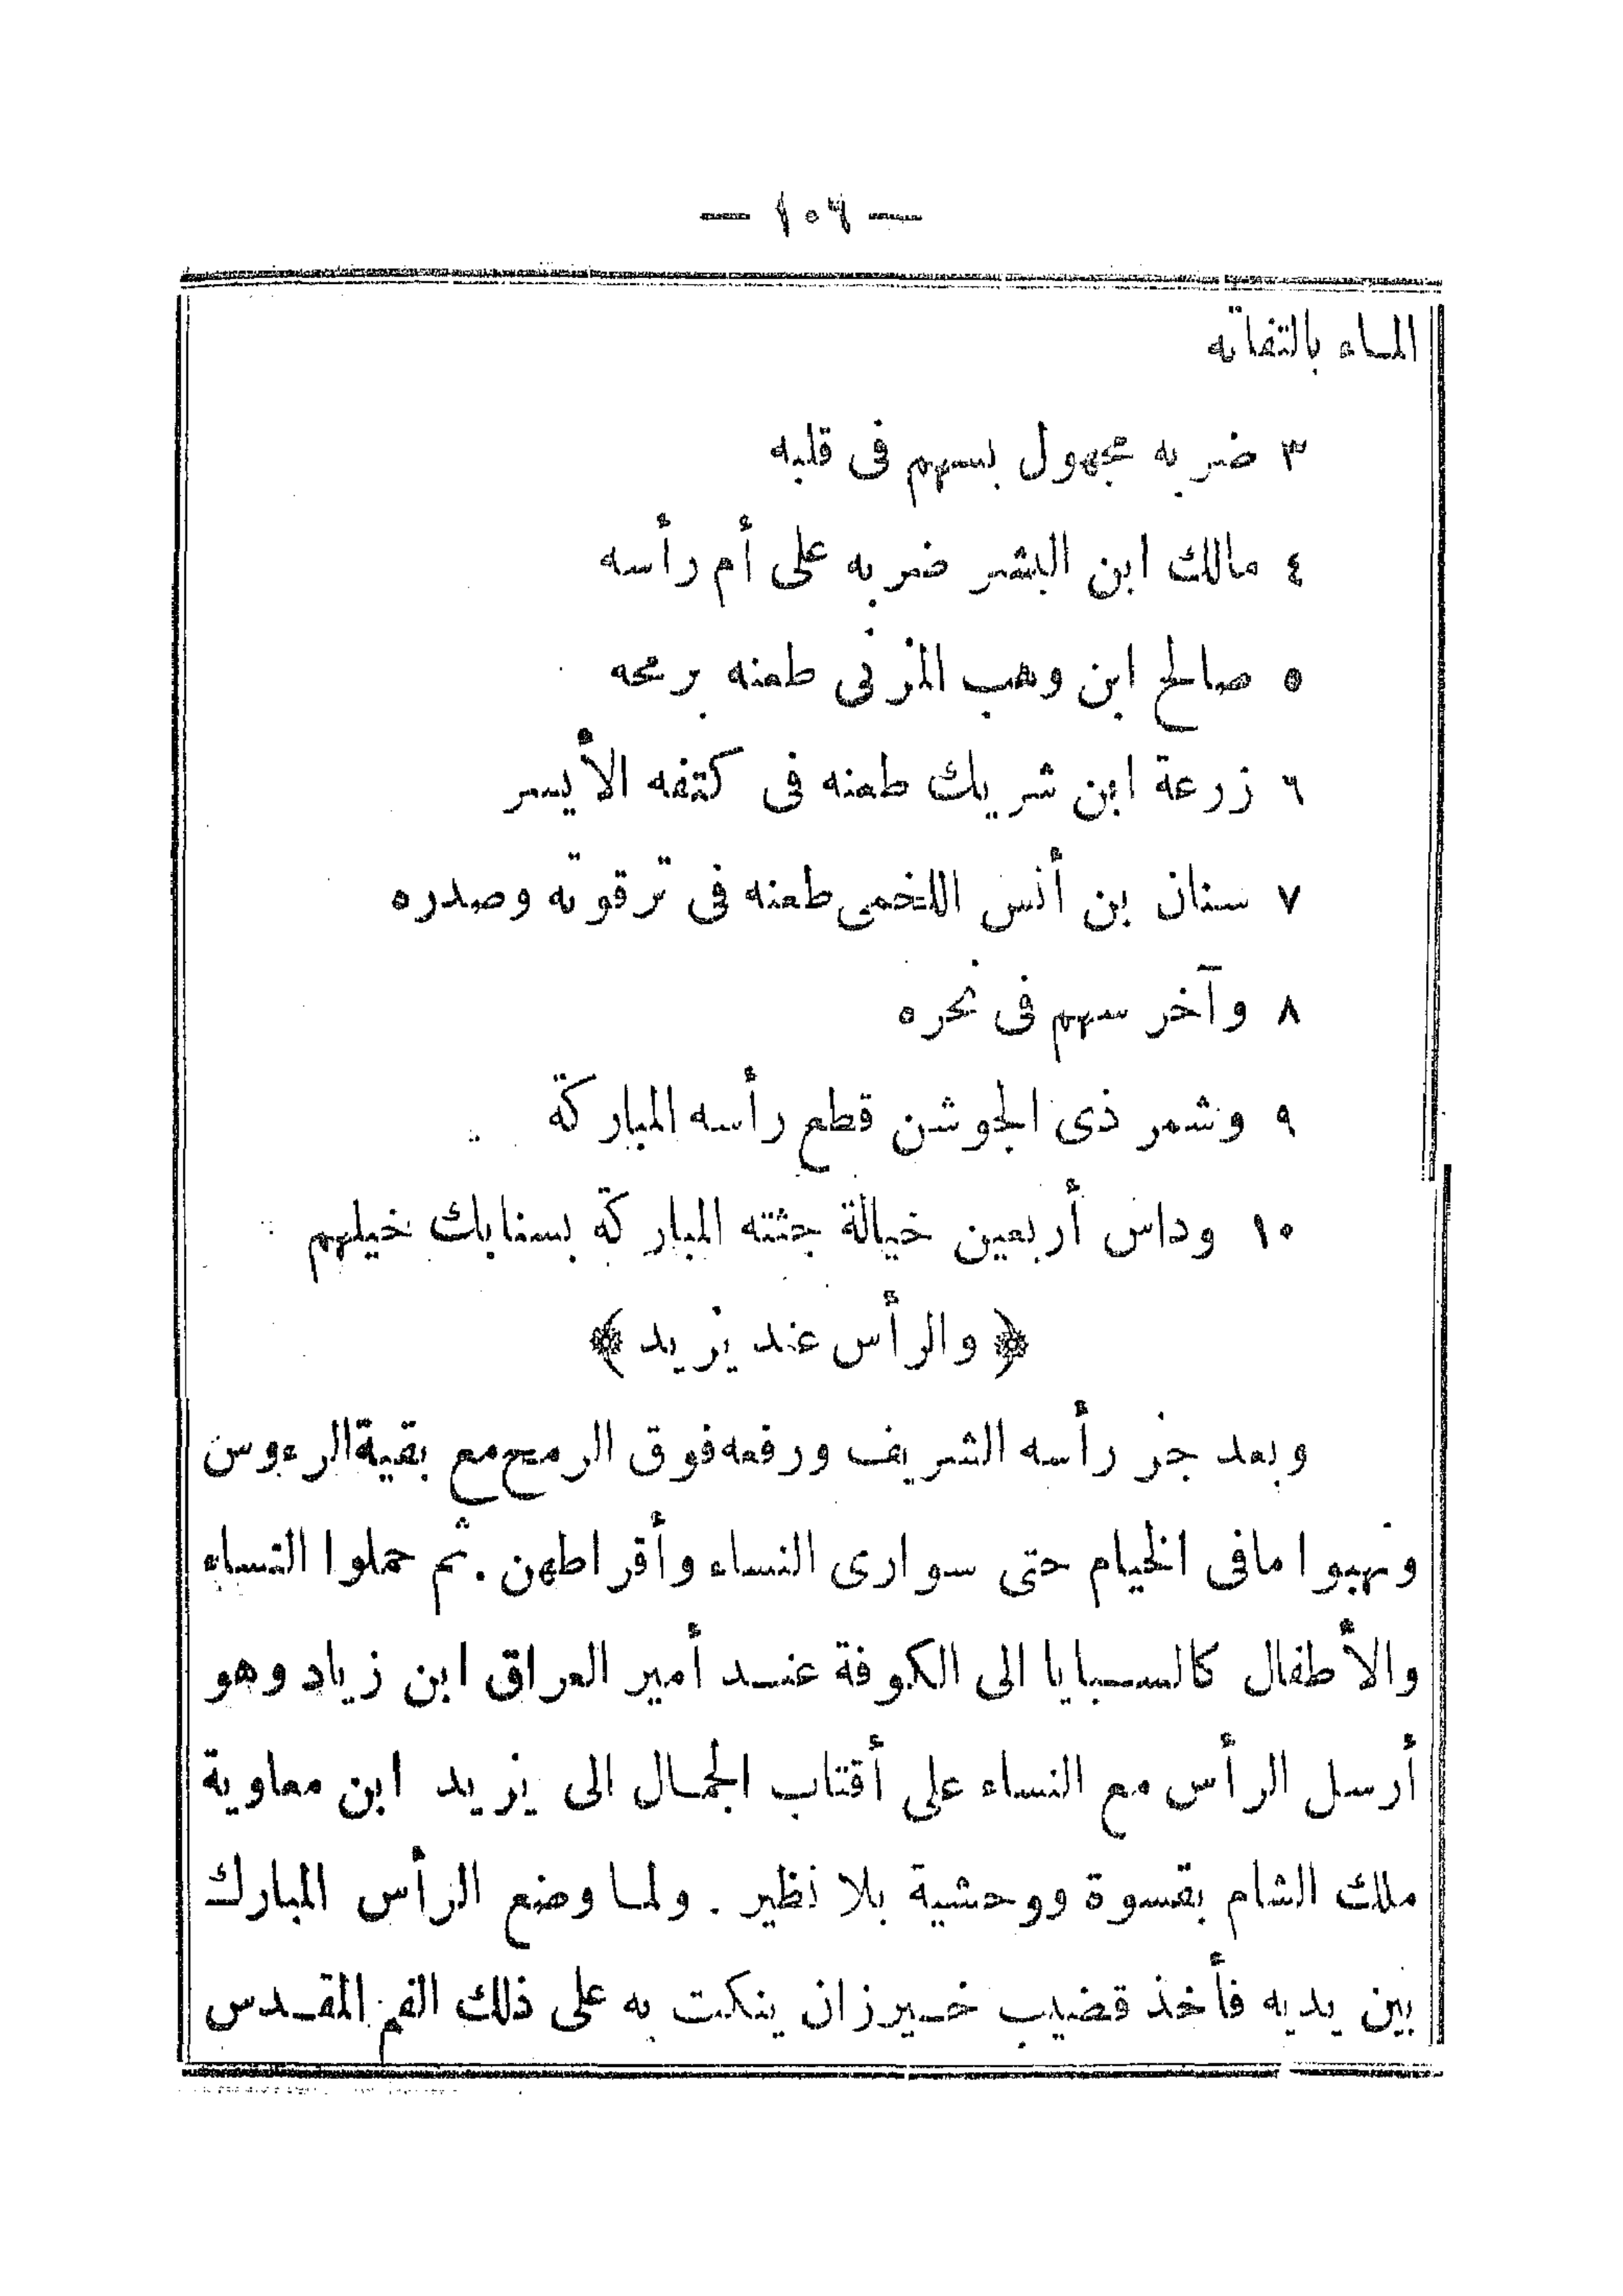 — ١٠٦ —
الماء بالتفاته
٣ ضربه مجهول بسهم فى قلبه
٤ مالك ابن البشر ضربه على أم رأسه
٥ صالح ابن وهب المزنى طعنه برمحه
٦ زرعة ابن شريك طعنه فى كتفه الأيسر
٧ سنان بن أنس اللخمى طعنه فى ترقوته وصدره
٨ وآخر سهم فى نحره
٩ وشمر ذى الجوشن قطع رأسه المباركة
١٠ وداس أربعين خيالة جثته المباركة بسنابك خيلهم
﴿ والرأس عند يزيد ﴾
وبعد جز رأسه الشريف ورفعه فوق الرمح مع بقية الرءوس
ونهبوا مافى الخيام حتى سوارى النساء وأقراطهن . ثم حملوا النساء
والأطفال كالسبايا الى الكوفة عند أمير العراق ابن زياد وهو
أرسل الرأس مع النساء على أقتاب الجمال الى يزيد ابن معاوية
ملك الشام بقسوة ووحشية بلا نظير . ولما وضع الرأس المبارك
بين يديه فأخذ قضيب خيرزان ينكت به على ذلك الفم المقدس